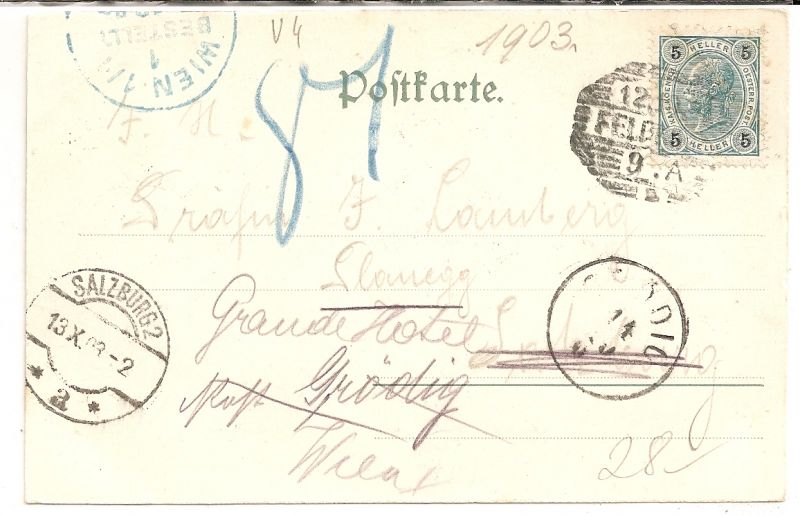 WIEN 1/1
BESTELLT
1
V4
1903.
81
Postkarte.
5 HELLER 5
5 HELLER 5
12.
FELD
9.A
F. H.
Gräfin F. Lamberg
Glanegg
SALZBURG 2
13.X.03-2
* a *
Grande Hotel Salzburg
Post Grödig
Wien
GRÖDIG
28-